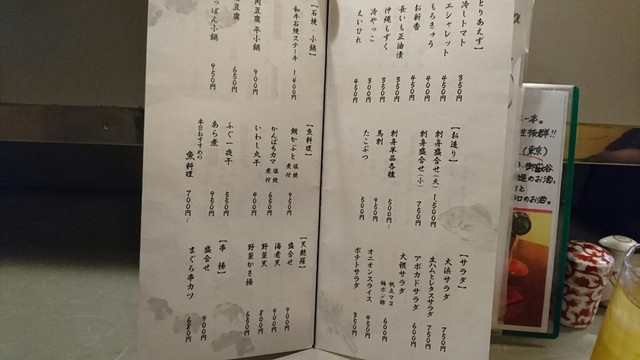 とりあえず】
冷しトマト 350円
エシャレット 400円
もろきゅう 400円
お新香 450円
長いも正油漬 350円
沖縄もずく 350円
冷やっこ 300円
えいひれ 450円
【お造り】
刺身盛合せ(大) 1,500円
刺身盛合せ(小) 750円
刺身単品各種 500円
馬刺 950円
たこぶつ 500円
【サラダ】
大浜サラダ 750円
生ハムとレタスサラダ 750円
アボカドサラダ 600円
大根サラダ 600円
オニオンスライス 450円
ポテトサラダ 350円
【石焼・小鍋】
和牛石焼ステーキ 1400円
肉豆腐辛小鍋 900円
豆腐 650円
っぽん小鍋 950円
【魚料理】
鯛かぶと 塩焼 煮付 950円
かんぱちカマ 塩焼 煮付 650円
いわし丸干 400円
ふぐ一夜干 550円
あら煮 950円
本日おすすめの
魚料理 700円
【天麩羅】
盛合せ 900円
海老天 900円
野菜天 800円
野菜かき揚 650円
【串揚】
盛合せ 900円
まぐろ串カツ 680円
一本。
(東京)
のお酒。